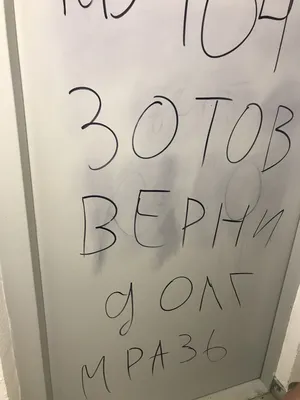 104
ЗОТОВ
ВЕРНИ
ДОЛГ
МРАЗЬ